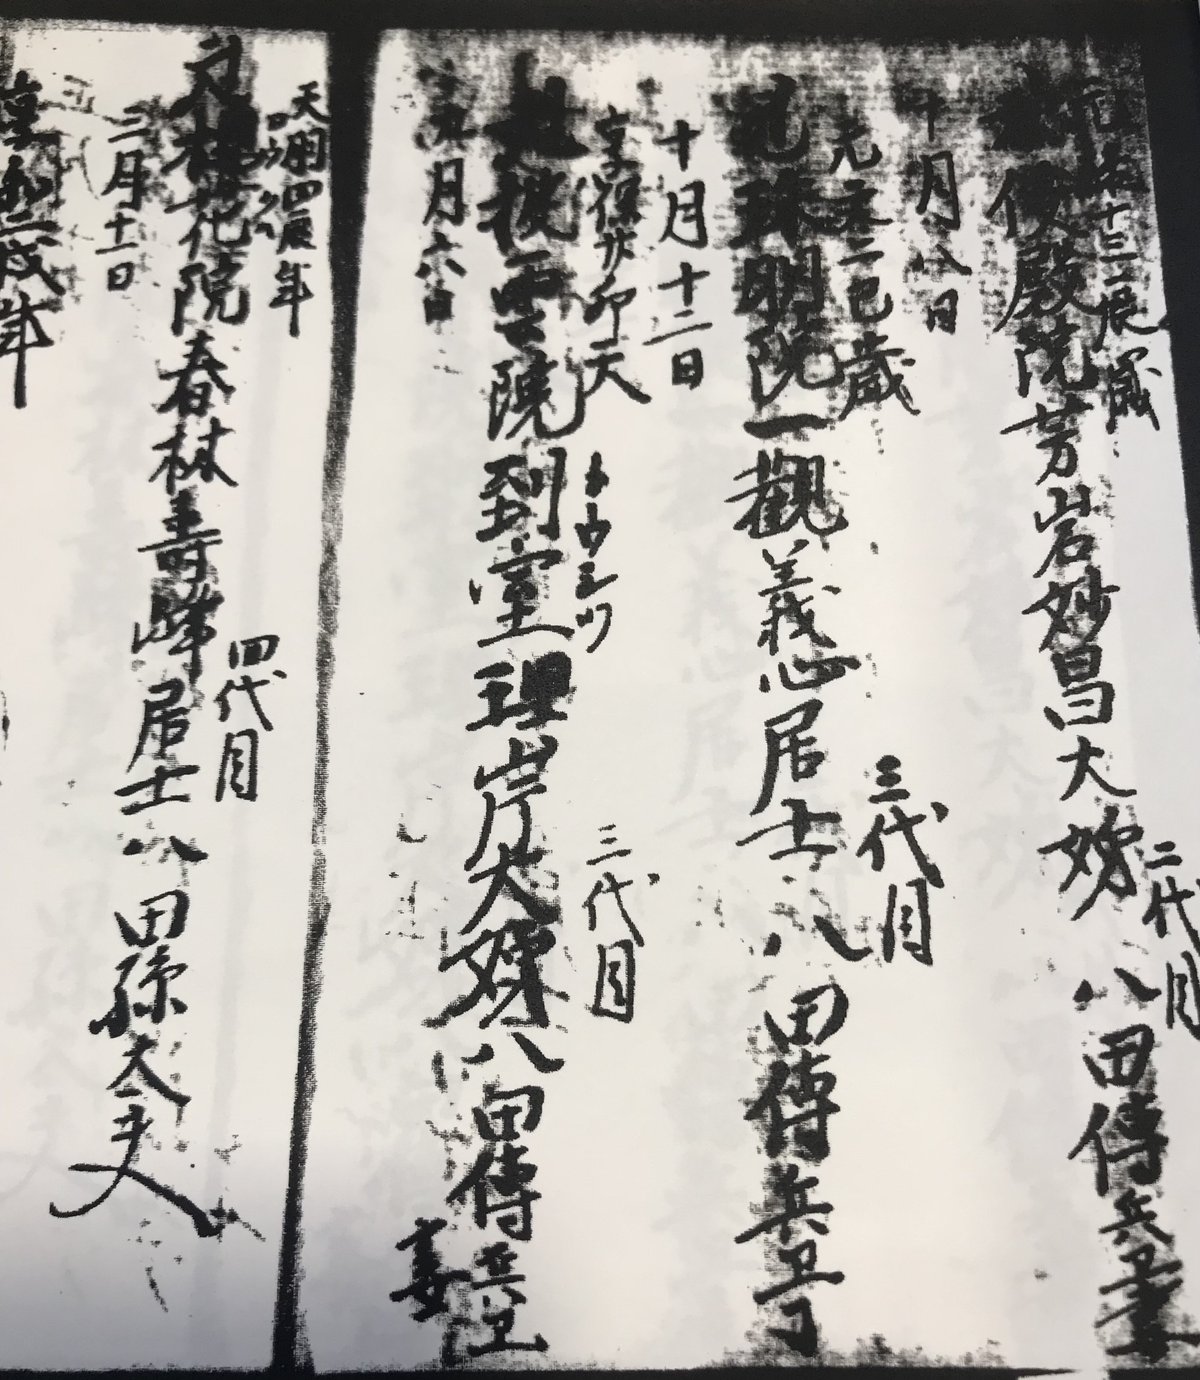 元禄十三辰歳
十月八日
殿院芳岩妙昌大姉 八田傳兵衛妻
二代目
元文二巳歳
十月十二日
珠明院一觀義心居士 八田傳兵卫
三代目
享保 卯天
月六日
雲院到室理岸大姉 八田傳兵卫
トウシツ
三代目
妻
天明四辰年
三月十一日
花院春林壽峰居士 八田孫太夫
四代目
享和二戌年